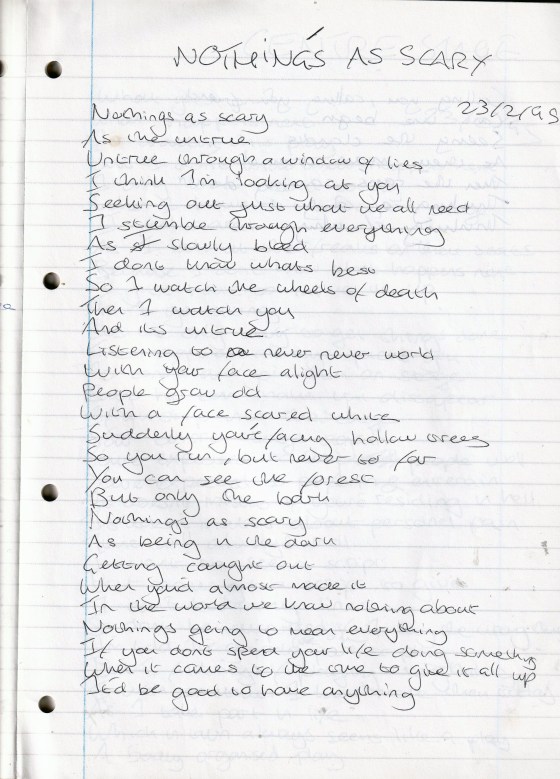 NOTHING'S AS SCARY
23/2/99
Nothings as scary
As the untrue
Untrue through a window of lies
I think I'm looking at you
Seeking out just what we all need
I stumble through everything
As I slowly bleed
I dont know whats best
So I watch the wheels of death
Then I watch you
And its untrue
Listening to never never world
With your face alight
People grow old
With a face scared white
Suddenly you're facing hollow trees
So you run, but never to far
You can see the forest
But only the bark
Nothings as scary
As being in the dark
Getting caught out
When you'd almost made it
In the world we know nothing about
Nothings going to mean everything
If you dont spend your life doing something
When it comes to the time to give it all up
It'd be good to have anything